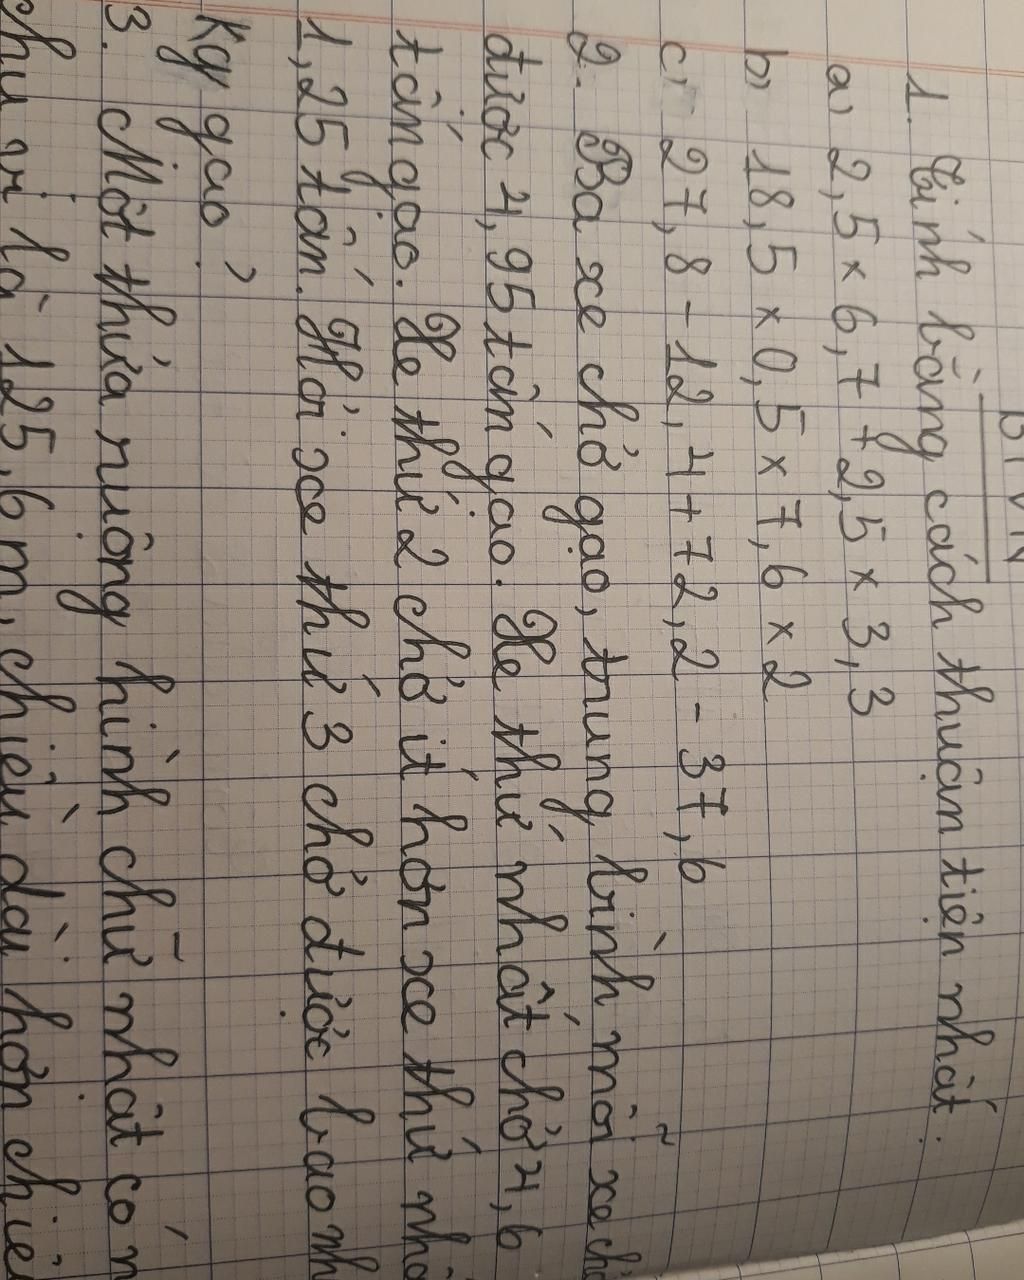 BTVN
1. Tính bằng cách thuận tiện nhất.
a) 2,5 × 6,7 + 2,5 × 3,3
b) 18,5 × 0,5 × 7,6 × 2
c) 27,8 - 12,4 + 72,2 - 37,6
2. Ba xe chở gạo, trung bình mỗi xe
được 4,95 tấn gạo. Xe thứ nhất chở 4,6
tấn gạo. Xe thứ 2 chở ít hơn xe thứ
1,25 tấn. Hỏi xe thứ 3 chở được bao
Kg gạo?
3. Một thửa ruộng hình chữ nhật có
chu vi là 125,6 m, chiều dài hơn